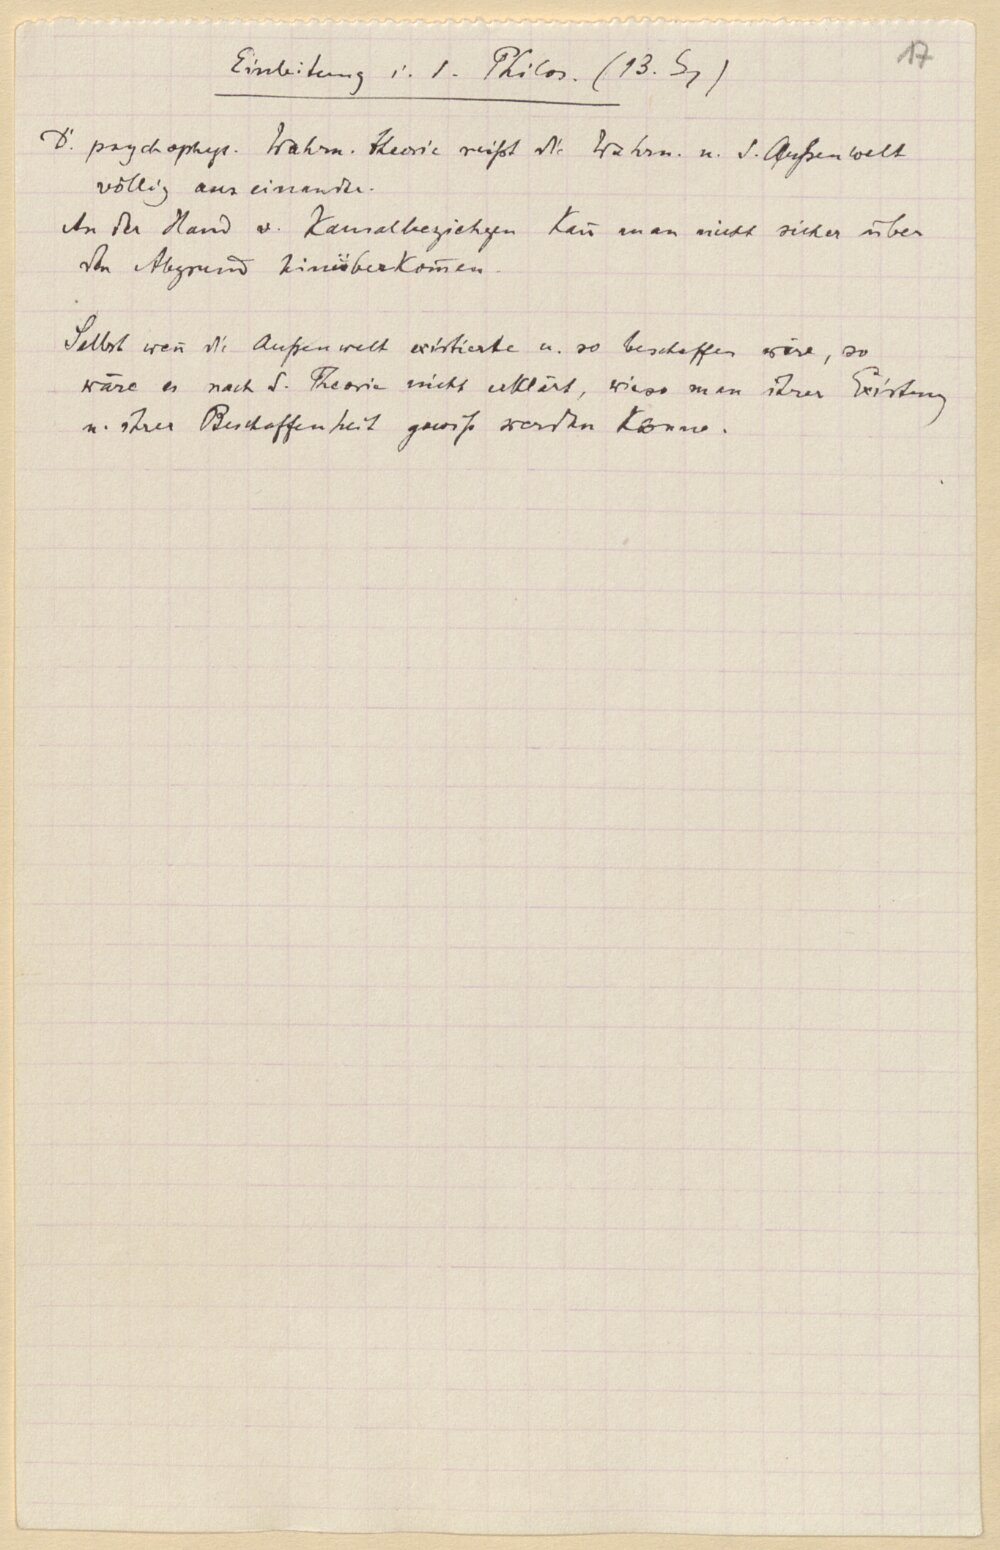 17
Einleitung i. d. Philos. (13. Sg)
D. psychophys. Wahrn. theorie reißt die Wahrn. u. d. Außenwelt
völlig auseinander.
An der Hand v. Kausalbeziehgen kan̄ man nicht sicher über
den Abgrund hinüberkom̄en.
Selbst wen̄ die Außenwelt existierte u. so beschaffen wäre, so
wäre es nach d. Theorie nicht erklärt, wieso man ihrer Existenz
u. ihrer Beschaffenheit gewiß werden könne.